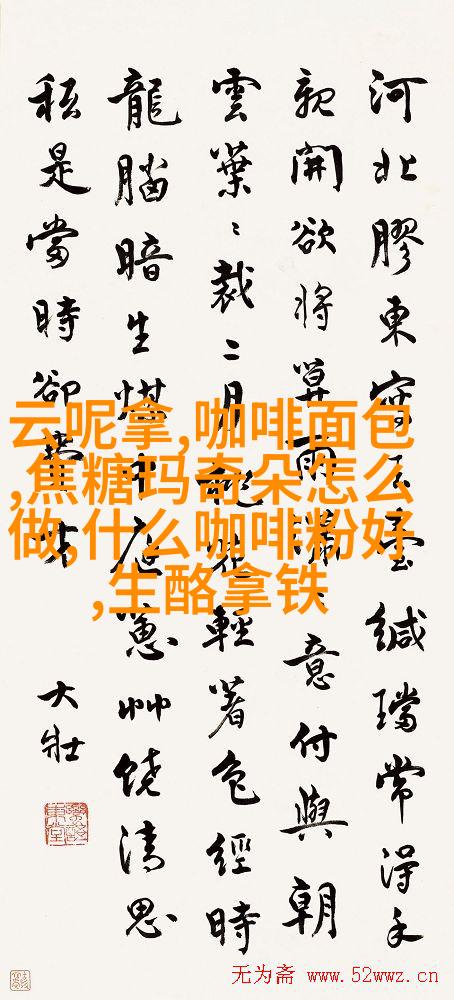 河北膠東緘璫常得手
親開欲將意付與朝
雲葉〻裁二月花輕著色經時
龍腦暗生庭蕙艸饒清思
秖是當時卻
大壯
云呢拿,咖啡面包
,焦糖玛奇朵怎么
做,什么咖啡粉好
,生酪拿铁
无为斋 www.52wwz.cn